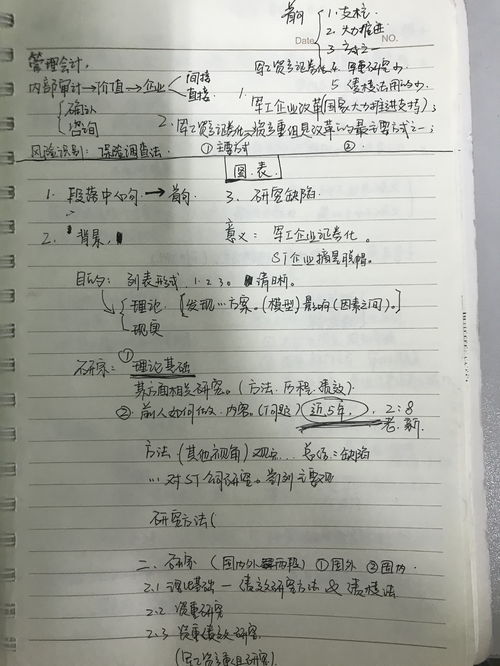 首句 { 1. 支柱
2. 大力推进
Date NO.
3. 方式之一
管理会计。
军工资产证券化 4. 军重研究少
内部审计→价值→企业 < 间接 直接
5. 绩效法用的少
1. 军工企业改革国家大力推进支持);
{ 确认 咨询
2. 军工资产证券化→资产重组是改革的最主要方式之一;
风险识别: 保险调查法 ① 主要方式 ②:
图、表
1. 段落中心句 → 首句 3. 研究缺陷
2. 背景, 意义: 军工企业证券化。
ST企业摘星脱帽。
目的: 列表形式. 1. 2 3. 清晰。
{ 理论. [发现…方案。(模型) 影响(因素之间)。]
现实
研究: ① 理论基础
某方面相关研究。(方法. 历程. 绩效)
②. 前人如何做. 内容。(问题) 近5年, 2:8
老. 新.
方法 (其他视角) 观点… 总结: 缺陷
… 对ST公司研究。
研究方法(
二、研究 (国内外 两段) ①国外 ②国内.
2.1 理论基础 — 绩效研究方法 &
2.2 资重研究
2.3 资重绩效研究.
(军工资产重组研究).